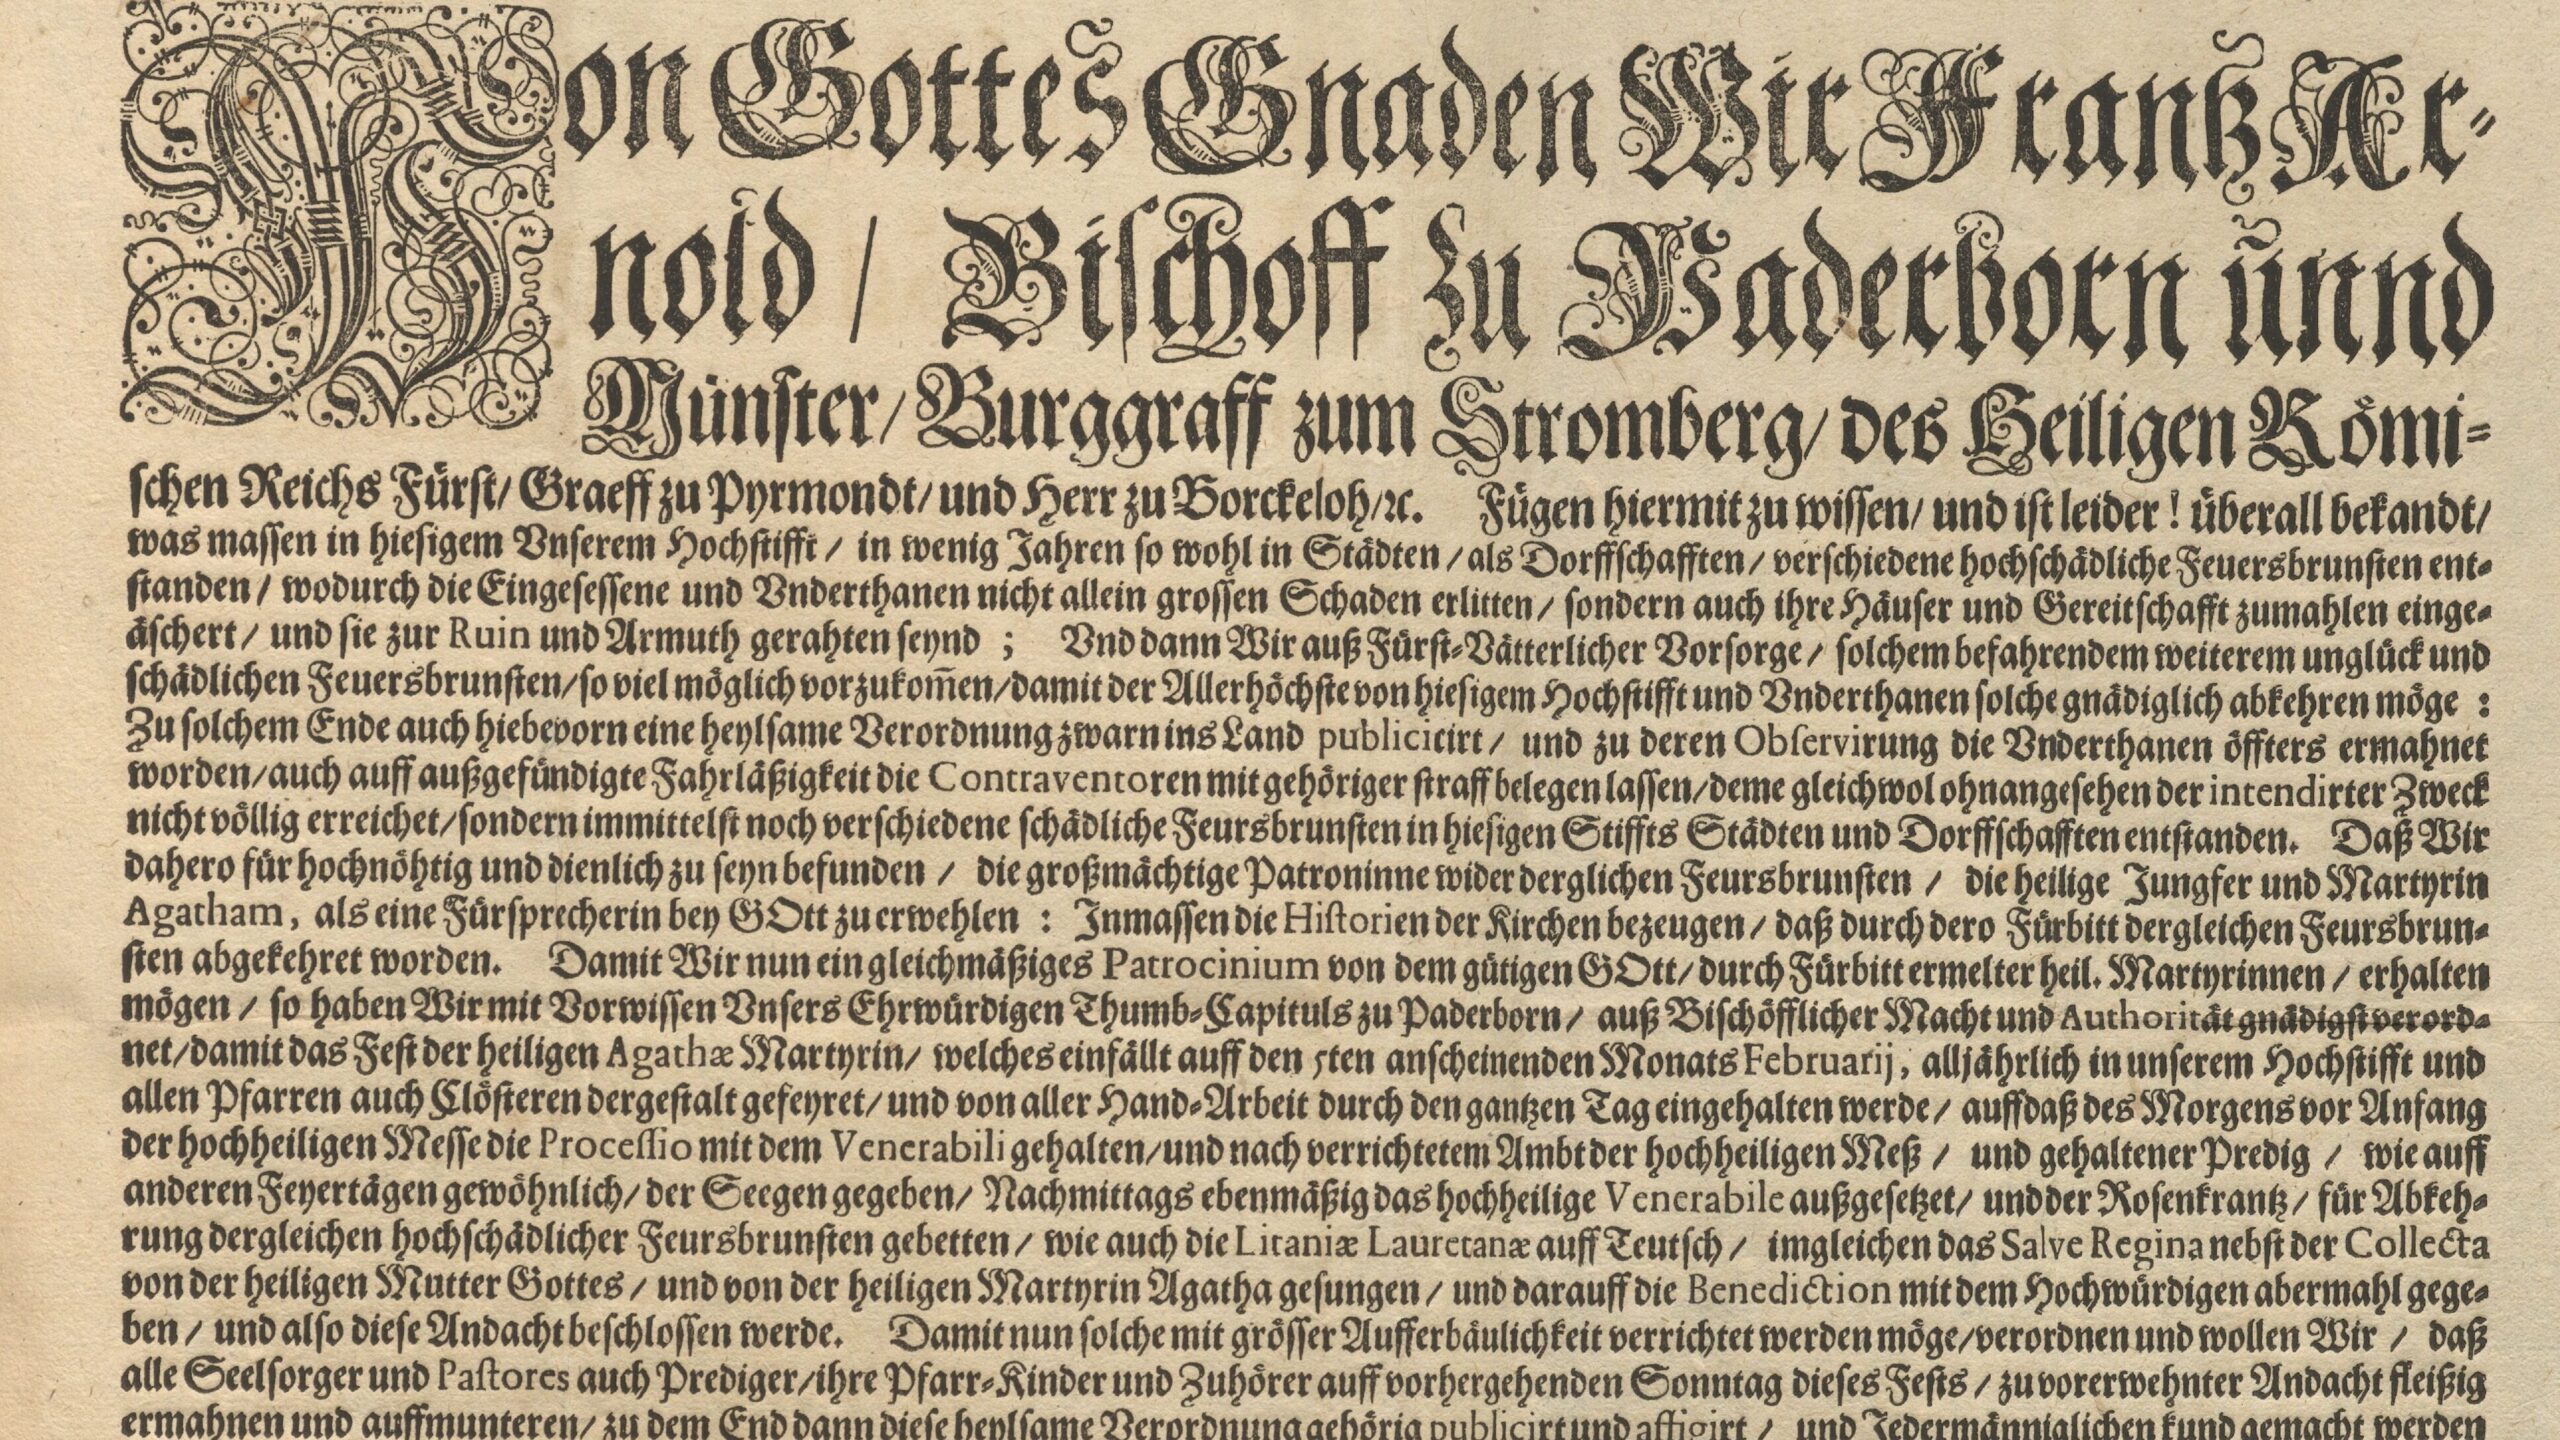 Von Gottes Gnaden Wir Frantz Ar-
nold / Bischoff zu Paderborn ůnnd
Münster / Burggraff zum Stromberg / des Heiligen Römi-
schen Reichs Fürst / Graeff zu Pyrmondt / und Herr zu Borckeloh / ꝛc. Fügen hiermit zu wissen / und ist leider ! überall bekandt /
was massen in hiesigem Vnserem Hochstifft / in wenig Jahren so wohl in Städten / als Dorffschafften / verschiedene hochschädliche Feuersbrunsten ent-
standen / wodurch die Eingesessene und Vnderthanen nicht allein grossen Schaden erlitten / sondern auch ihre Häuser und Gereitschafft zumahlen einge-
äschert / und sie zur Ruin und Armuth gerahten seynd ; Vnd dann Wir auß Fürst-Vätterlicher Vorsorge / solchem befahrendem weiterem unglück und
schädlichen Feuersbrunsten / so viel möglich vorzukom̅en / damit der Allerhöchste von hiesigem Hochstifft und Vnderthanen solche gnädiglich abkehren möge :
Zu solchem Ende auch hiebevorn eine heylsame Verordnung zwarn ins Land publicicirt / und zu deren Observirung die Vnderthanen öffters ermahnet
worden / auch auff außgefündigte Fahrläßigkeit die Contraventoren mit gehöriger straff belegen lassen / deme gleichwol ohnangesehen der intendirter Zweck
nicht völlig erreichet / sondern immittelst noch verschiedene schädliche Feursbrunsten in hiesigen Stiffts Städten und Dorffschafften entstanden. Daß Wir
dahero für hochnöhtig und dienlich zu seyn befunden / die großmächtige Patroninne wider derglichen Feursbrunsten / die heilige Jungfer und Martyrin
Agatham, als eine Fürsprecherin bey GOtt zu erwehlen : Inmassen die Historien der Kirchen bezeugen / daß durch dero Fürbitt dergleichen Feursbrun-
sten abgekehret worden. Damit Wir nun ein gleichmäßiges Patrocinium von dem gütigen GOtt / durch Fürbitt ermelter heil. Martyrinnen / erhalten
mögen / so haben Wir mit Vorwissen Vnsers Ehrwürdigen Thumb-Capituls zu Paderborn / auß Bischöfflicher Macht und Authorität gnädigst verord-
net / damit das Fest der heiligen Agathæ Martyrin / welches einfällt auff den 5ten anscheinenden Monats Februarij, alljährlich in unserem Hochstifft und
allen Pfarren auch Clösteren dergestalt gefeyret / und von aller Hand-Arbeit durch den gantzen Tag eingehalten werde / auffdaß des Morgens vor Anfang
der hochheiligen Messe die Processio mit dem Venerabili gehalten / und nach verrichtetem Ambt der hochheiligen Meß / und gehaltener Predig / wie auff
anderen Feyertägen gewöhnlich / der Seegen gegeben / Nachmittags ebenmäßig das hochheilige Venerabile außgesetzet / und der Rosenkrantz / für Abkeh-
rung dergleichen hochschädlicher Feursbrunsten gebetten / wie auch die Litaniæ Lauretanæ auff Teutsch / imgleichen das Salve Regina nebst der Collecta
von der heiligen Mutter Gottes / und von der heiligen Martyrin Agatha gesungen / und darauff die Benediction mit dem Hochwürdigen abermahl gege-
ben / und also diese Andacht beschlossen werde. Damit nun solche mit grösser Aufferbäulichkeit verrichtet werden möge / verordnen und wollen Wir / daß
alle Seelsorger und Pastores auch Prediger / ihre Pfarr-Kinder und Zuhörer auff vorhergehenden Sonntag dieses Fests / zu vorerwehnter Andacht fleißig
ermahnen und auffmunteren / zu dem End dann diese heylsame Verordnung gehörig publicirt und affigirt / und Jedermänniglichen kund gemacht werden